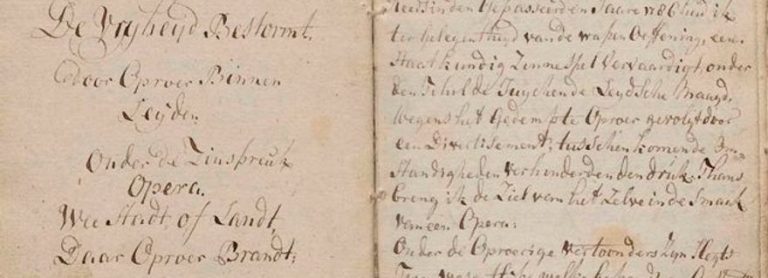 De Vryheyd Bestormt,
Door Oproer Binnen
Leyden
Onder de Zinspreuk
Opera.
Wee Stadt, of Landt,
Daar Oproer Brandt:
in den Gepasseerden Jaare 1786 had ik
ter gelegentheyd van de wapen Oeffening, een
Staatkundig Zinnespel Vervaardigt, onder
den Schul de Juychende Leydsche Maagd,
Wegens het Gedempte Oproer gevolgt door
een Divertisement; tusschenkomende Om-
standigheden verhinderden den druk. Thans
breng ik de Ziel van het Zelve in de Smaak
van een Opera:
Onder de Oproerige Vertoonders Zyn Slegts